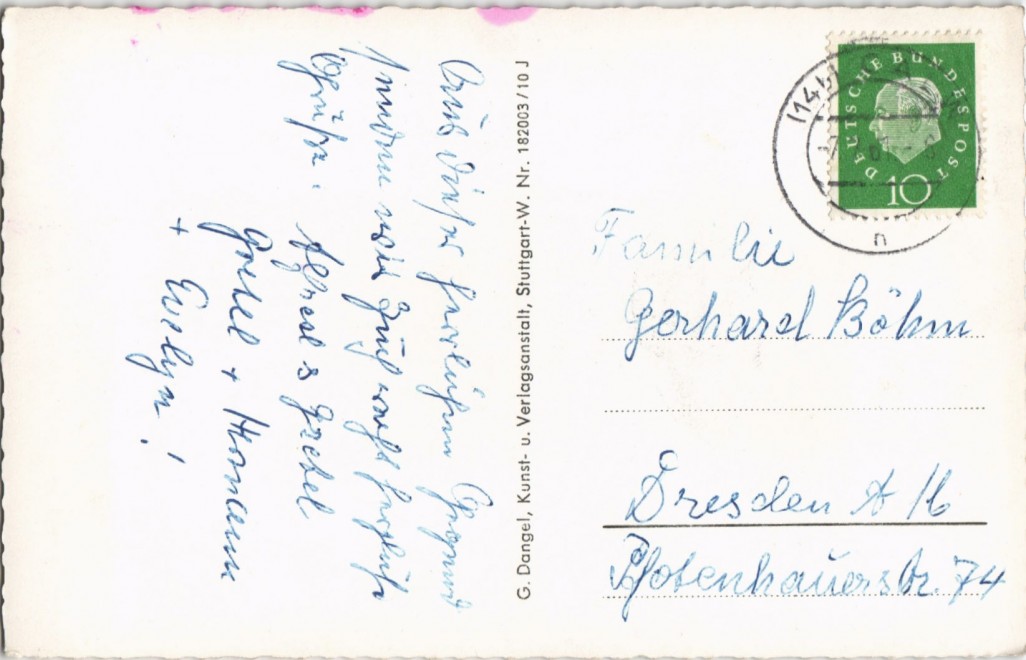 Aus dieser herrlichen Gegend
senden wir Euch recht herzliche
Grüße.
Gretel
+ Hermann
+ Evelyn!
G. Dangel, Kunst- u. Verlagsanstalt, Stuttgart-W. Nr. 182003/10 J
DEUTSCHE BUNDESPOST
10
(14
Familie
Gerhard Böhm
Dresden A 16
Pfotenhauerstr. 74